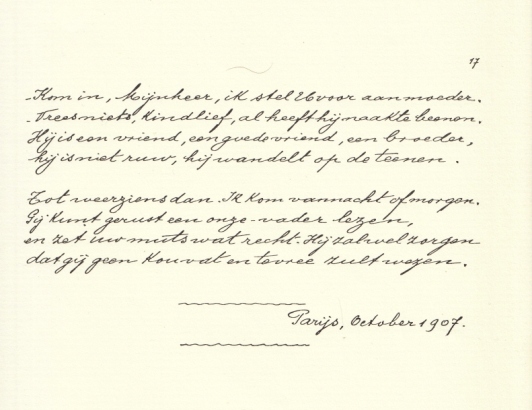 17
-Kom in, Mijnheer, ik stel U voor aan moeder.
-Vrees niets, kindlief, al heeft hij naakte beenen.
Hij is een vriend, een goede vriend, een broeder,
hij is niet ruw, hij wandelt op de teenen.
Tot weerziens dan. Ik kom vannacht of morgen.
Gij kunt gerust een onze-vader lezen,
en zet uw muts wat recht. Hij zal wel zorgen
dat gij geen kou vat en tevreê zult wezen.
Parijs, October 1907.